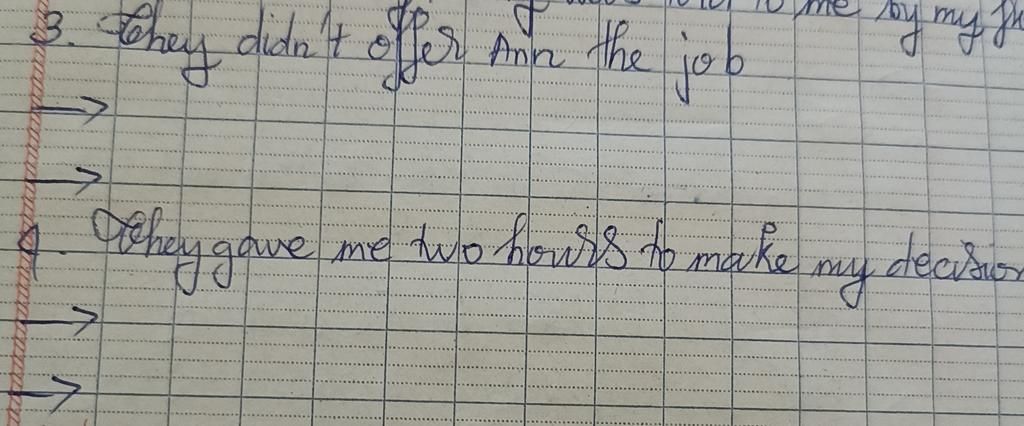 to me by my
3. They didn't offer Ann the job
→
→
4. They gave me two hours to make my decision
→
→